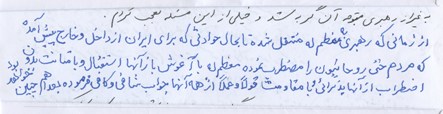 بغیر از رهبری متوجه آن گر شد و خیلی از این مسئله تعجب کردم.
از زمانی که رهبری معظم له مستقل شده تا بحال حوادثی که برای ایران از داخل و خارج پیش آمده
که مردم حتی روحانیون را مضطرب نموده معظم له با آغوش باز از آنها استقبال و با متانت بدون
اضطراب از آنها پذیرائی و با مقاومت قولاً و عملاً از همه آنها جواب شافی و کافی فرموده بعد هم چنین
خواهد بود